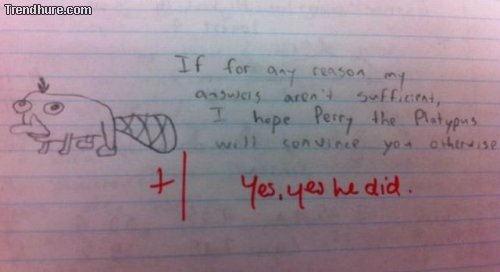 Trendhure.com
If for any reason my
answers aren't sufficient,
I hope Perry the Platypus
will convince you otherwise
+1 Yes, yes he did.